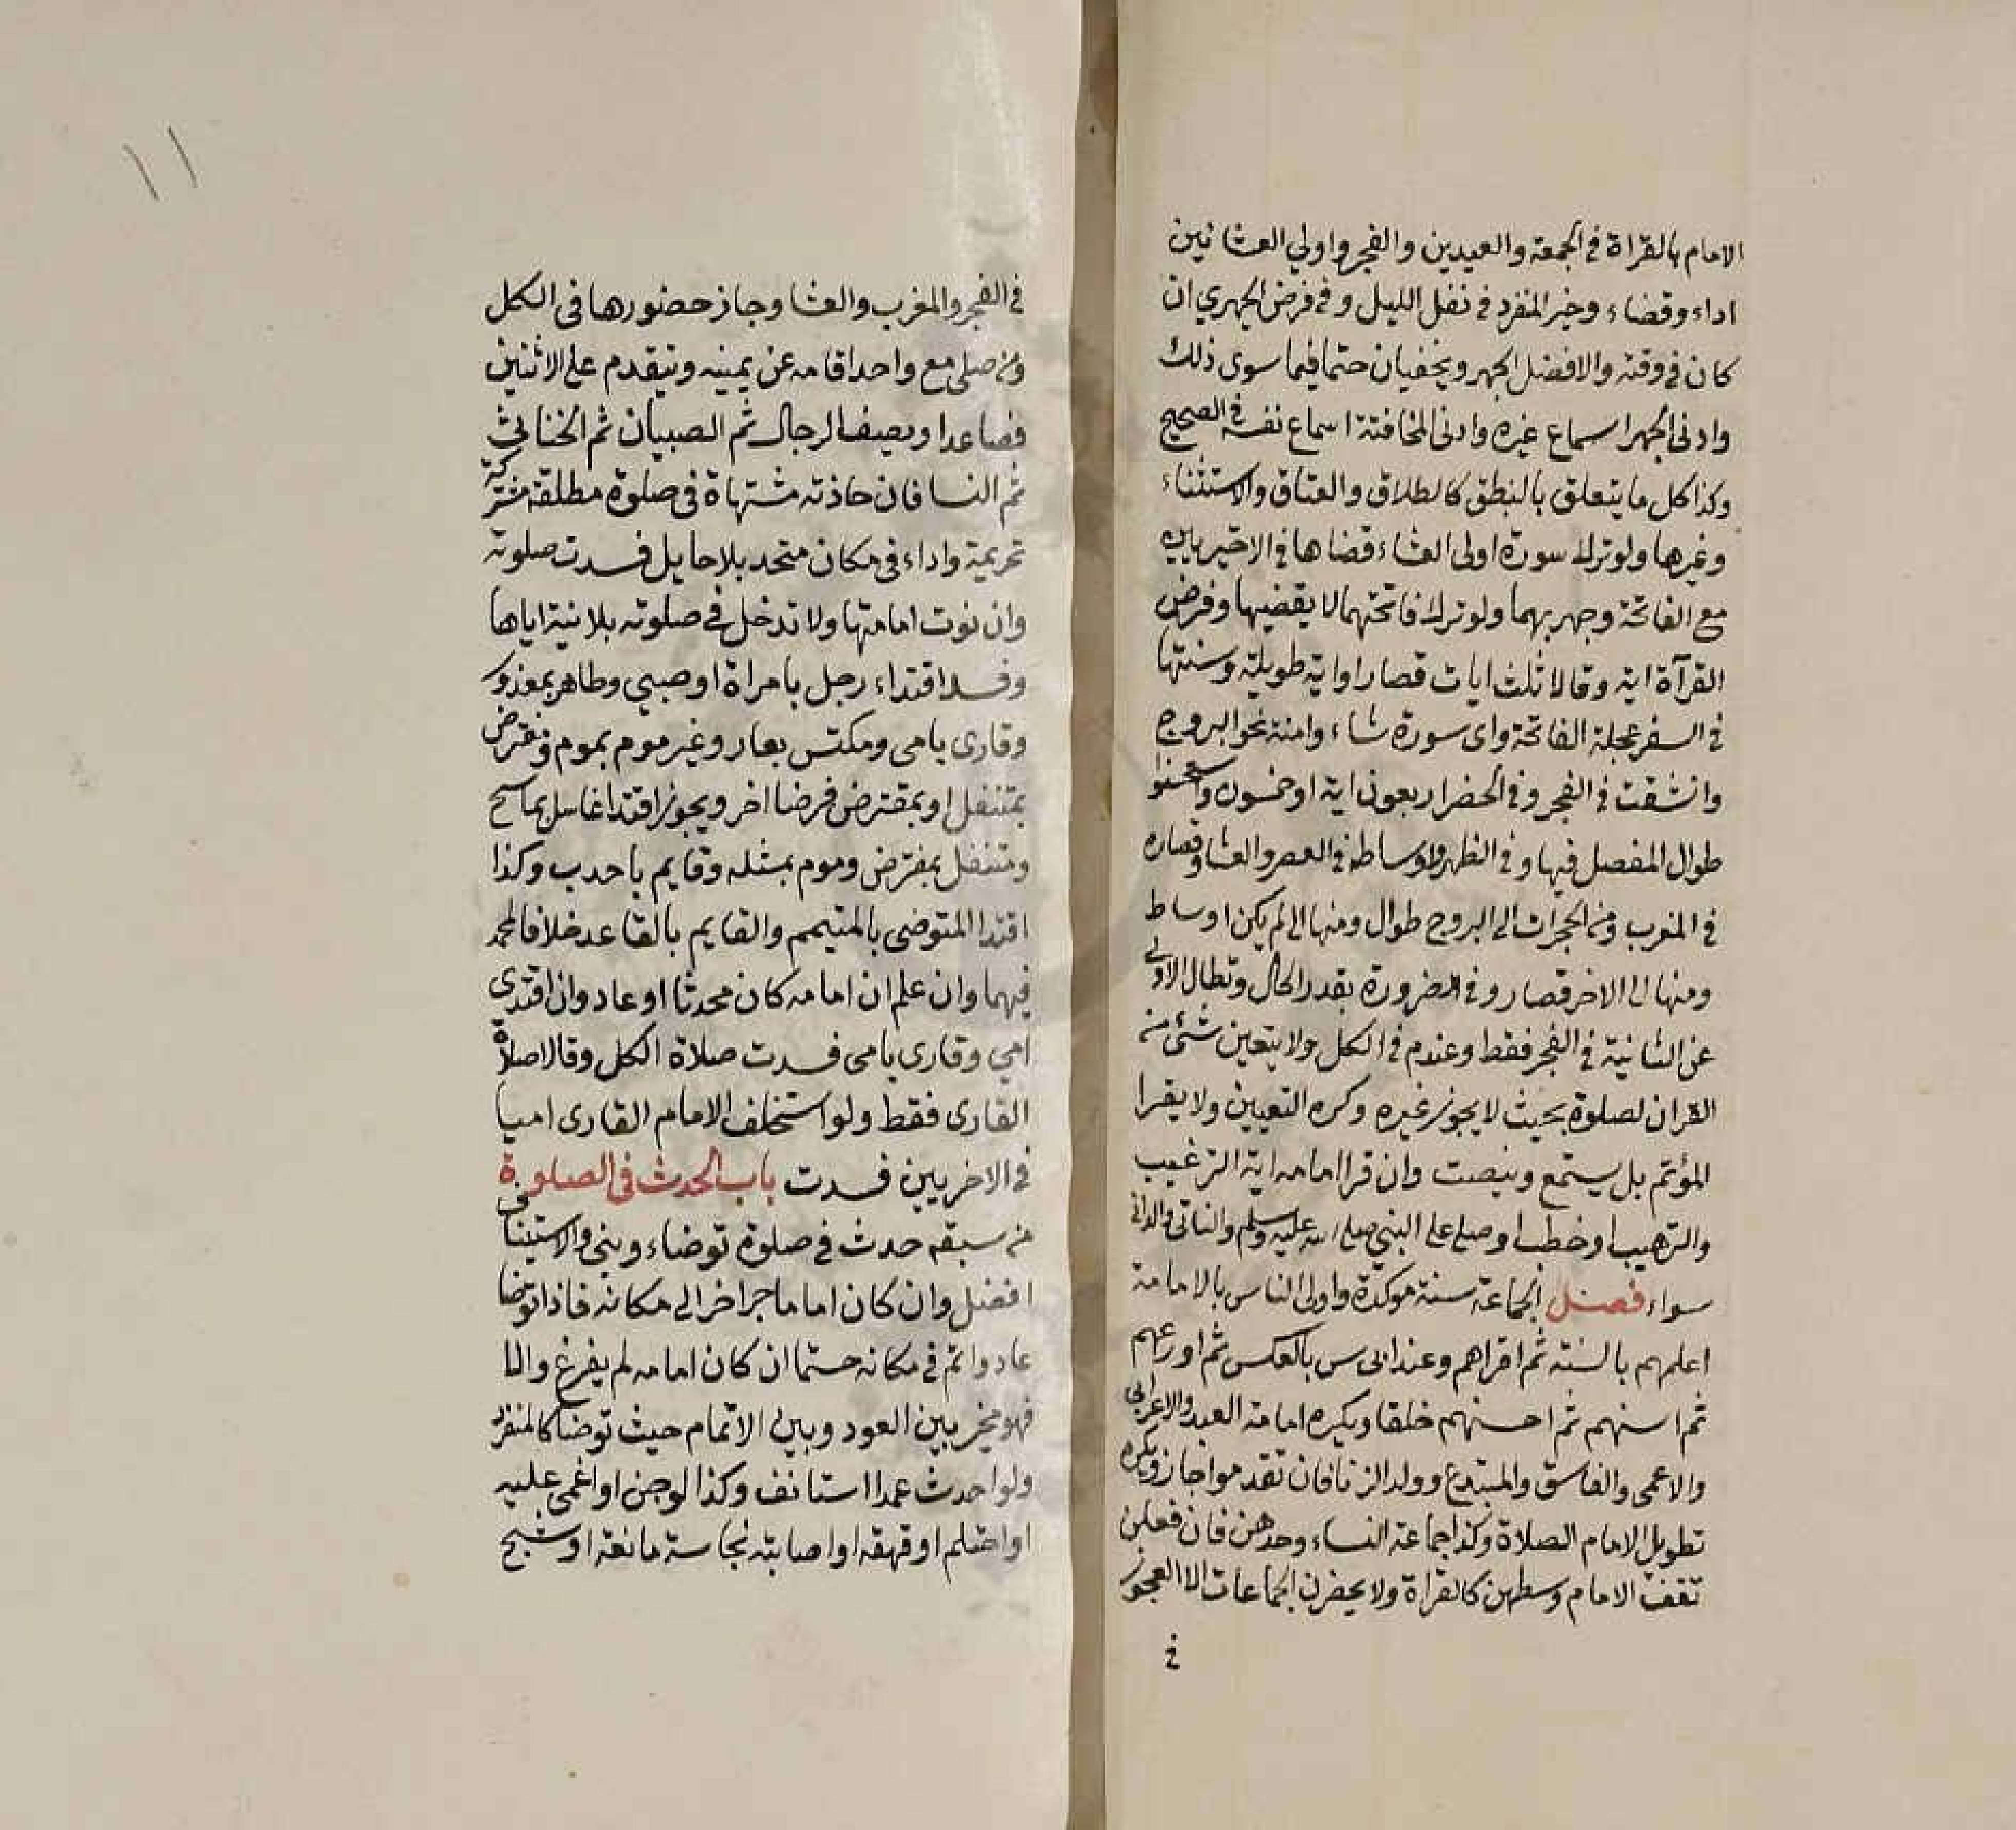 الامام بالقراة في الجمعة والعيدين والفجر واولي العشائين
اداء وقضاء وخير المنفرد في نفل الليل وفي فرض الجهري ان
كان في وقته والافضل الجهر ويخفيان حتما فيما سوى ذلك
وادنى الجهر اسماع غيره وادنى المخافتة اسماع نفسه في الصحيح
وكذا كل ما يتعلق بالنطق كالطلاق والعتاق والاستثناء
وغيرها ولو ترك سورة اولى العشاء قضاها في الاخيريين
مع الفاتحة وجهر بهما ولو ترك فاتحتهما لا يقضيها وفرض
القرآة اية وقالا ثلث ايات قصار او اية طويلة وسنتها
في السفر عجلة الفاتحة واى سورة شاء وامنة نحو البروج
وانشقت في الفجر وفي الحضر اربعون اية او خمسون واستحسنوا
طوال المفصل فيها وفي الظهر واوساطه في العصر والعشا وقصاره
في المغرب ومن الحجرات الى البروج طوال ومنها الى لم يكن اوساط
ومنها الى الاخر قصار وفي الضرورة بقدر الحال وتطال الاولى
عن الثانية في الفجر فقط وعندم في الكل ولا يتعين شئ من
القران لصلوة بحيث لا يجوز غيره وكره التعيين ولا يقرا
المؤتم بل يستمع وينصت وان قرا امامه اية الترغيب
والترهيب او خطب او صلى على النبي صلى الله عليه وسلم والنائى والدانى
سواء فصل الجماعة سنة موكدة واولى الناس بالامامة
اعلمهم بالسنة ثم اقراهم وعند ابى س بالعكس ثم اورعهم
ثم اسنهم ثم احسنهم خلقا ويكره امامة العبد والاعرابى
والاعمى والفاسق والمبتدع وولد الزنا فان تقدموا جاز ويكره
تطويل الامام الصلاة وكذا جماعة النساء وحدهن فان فعلن
تقف الامام وسطهن كالعراة ولا يحضرن الجماعات الا العجوز
في
١١
في الفجر والمغرب والعشا وجاز حضورها فى الكل
ومن صلى مع واحد اقامه عن يمينه ويتقدم على الاثنين
فصاعدا ويصف الرجال ثم الصبيان ثم الخناثى
ثم النسا فان حاذته مشتهاة فى صلوة مطلقة مشتركة
تحريمة واداء فى مكان متحد بلا حايل فسدت صلوته
وان نوت امامتها ولا تدخل في صلوته بلا نية اياها
وفسد اقتداء رجل بامراة او صبي وطاهر بمعذور
وقارى بامى ومكتس بعار وغير موم بموم ومفترض
بمتنفل او بمفترض فرضا اخر ويجوز اقتدا غاسل بماسح
ومتنفل بمفترض وموم بمثله وقايم باحدب وكذا
اقتدا المتوضى بالمتيمم والقايم بالقاعد خلافا لمحمد
فيهما وان علم ان امامه كان محدثا اوعاد وان اقتدى
امي وقارى بامى فسدت صلاة الكل وقالا صلاة
القارى فقط ولو استخلف الامام القارى اميا
في الاخريين فسدت باب الحدث فى الصلوة
من سبقه حدث في صلوة توضاء وبنى والاستيناف
افضل وان كان اماما جر اخر الى مكانه فاذا توضا
عاد واتم في مكانه حتما ان كان امامه لم يفرغ والا
فهو مخير بين العود وبين الاتمام حيث توضا كالمنفرد
ولو احدث عمدا استانف وكذا لو جن او اغمى عليه
او احتلم او قهقه او اصابته نجاسة مانعة او شج